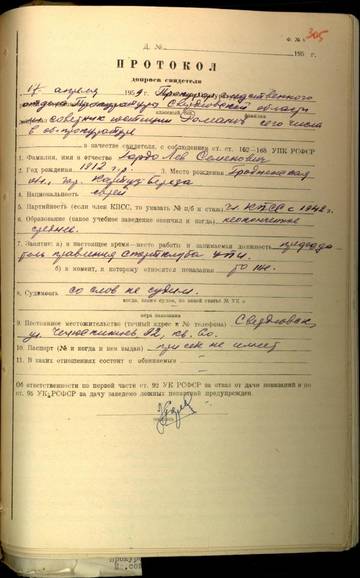 Ф. №
305
Д. №
195 г.
ПРОТОКОЛ
допроса свидетеля
17 апреля 1959 Прокурор следственного
отдела Прокуратуры Свердловской области
советник юстиции Романов сего числа
в обл.прокуратуре
в качестве свидетеля, с соблюдением ст. ст. 162—168 УПК РСФСР
1. Фамилия, имя и отчество Гордо Лев Семенович
2. Год рождения 1912 г.р. 3. Место рождения Гродненская
обл.,
4. Национальность еврей
5. Партийность (если член КПСС, то указать № п/б и стаж) чл. КПСС с 1942 г.
6. Образование (какое учебное заведение окончил и когда) неоконченное
среднее
7. Занятие: а) в настоящее время—место работы и занимаемая должность председа-
тель правления спортклуба УПИ
б) в момент, к которому относится показания
8. Судимость со слов не судим.
когда, каким судом, по какой статье УК и
мера наказания
9. Постоянное местожительство (точный адрес и № телефона) Свердловск,
ул.
10. Паспорт (№ и когда и кем выдан) при себе не имеет
11. В каких отношениях состоит с обвиняемым
Об ответственности по первой части ст. 92 УК РСФСР за отказ от дачи показаний и по
ст. 95 УК РСФСР за дачу заведомо ложных показаний предупрежден.